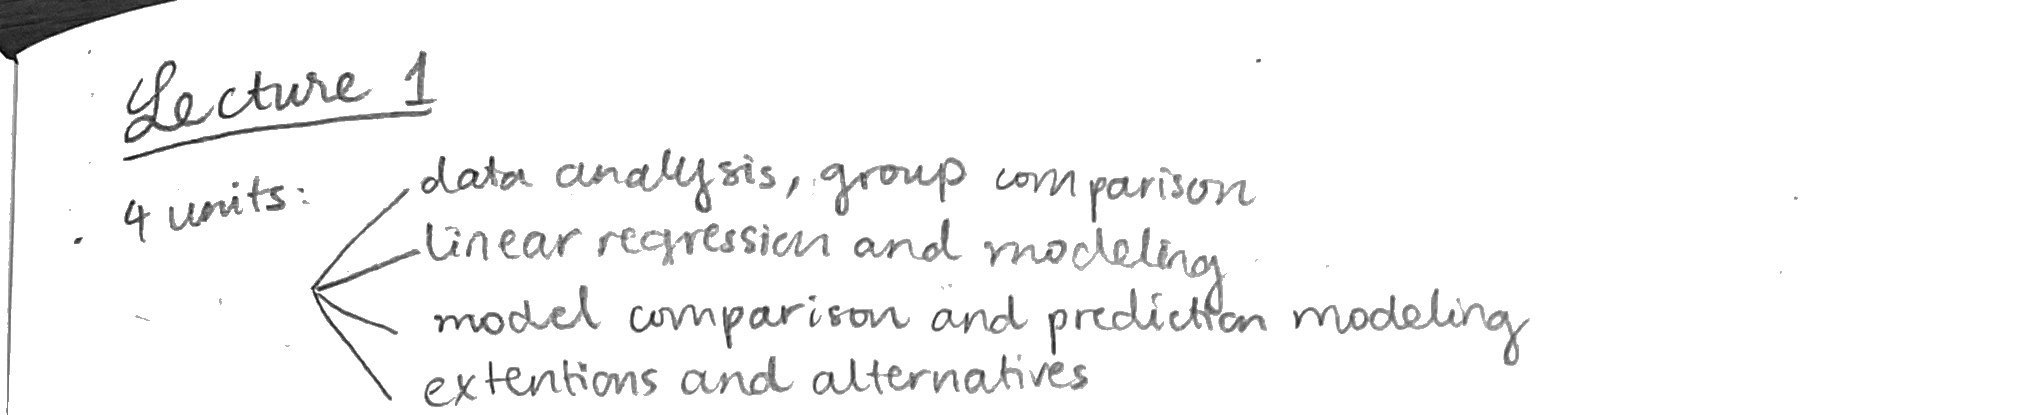 Lecture 1
4 units:
data analysis, group comparison
linear regression and modeling
model comparison and prediction modeling
extentions and alternatives